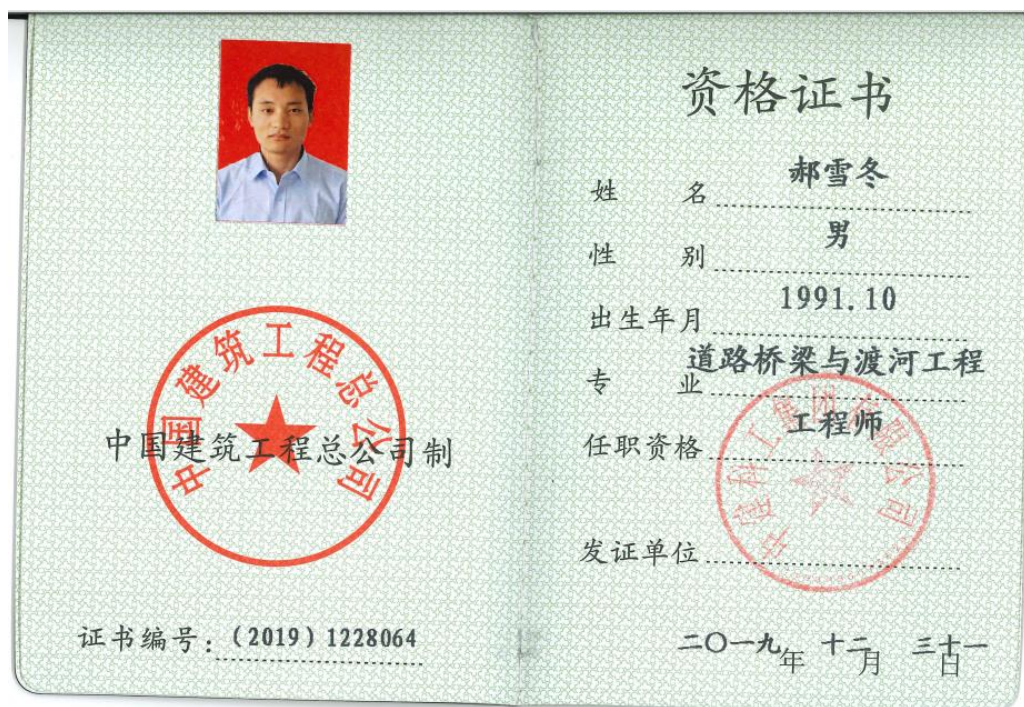 中国建筑工程总公司
中国建筑工程总公司制
证书编号：（2019）1228064
资格证书
姓名 郝雪冬
性别 男
出生年月 1991.10
专业 道路桥梁与渡河工程
任职资格 工程师
中建科工集团有限公司
发证单位
二〇一九年 十二月 三十一日